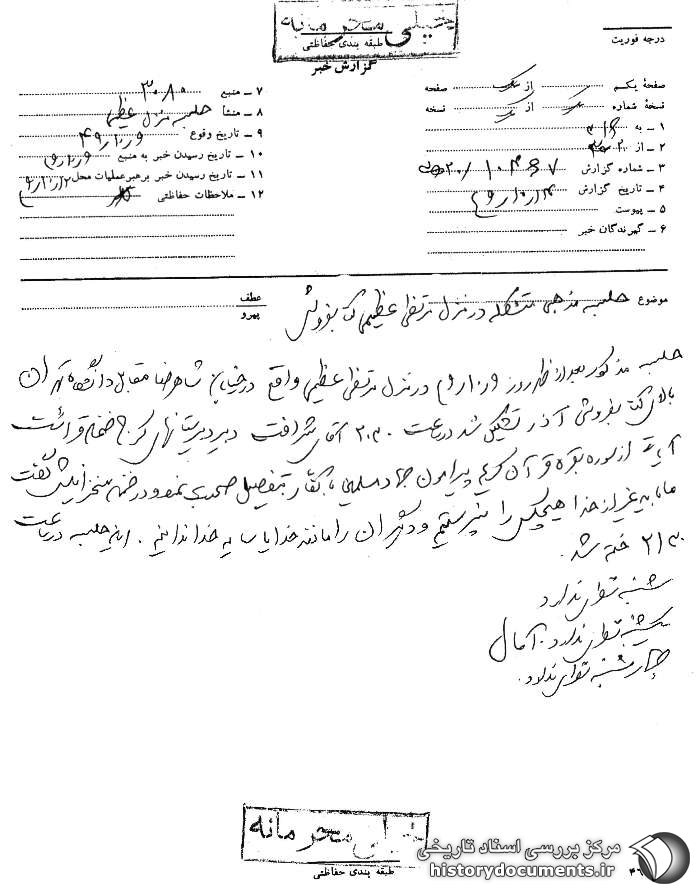 خیلی محرمانه
طبقه بندی حفاظتی
گزارش خبر
درجه فوریت
صفحهٔ یکم از یک صفحه
نسخهٔ شماره یک از یک نسخه
۱ ـ به
۲ ـ از
۳ ـ شماره گزارش
۴ ـ تاریخ گزارش
۵ ـ پیوست
۶ ـ گیرندگان خبر
۷ ـ منبع ۳۰۸۰
۸ ـ منشأ جلسه منزل عظیمی
۹ ـ تاریخ وقوع
۱۰ ـ تاریخ رسیدن خبر به منبع
۱۱ ـ تاریخ رسیدن خبر برهبر عملیات محل
۱۲ ـ ملاحظات حفاظتی
موضوع جلسه مذهبی متشکله در منزل مرتضی عظیمی کتابفروش
عطف
پیرو
جلسه مذکور بعد از ظهر روز در منزل مرتضی عظیمی واقع در خیابان شاهرضا مقابل دانشگاه تهران
بالای کتابفروشی آذر تشکیل شد در ساعت ۲۰۳۰ آقای شرافت دبیر دبیرستانهای کرج ضمن قرائت
آیات از سوره بقره قرآن کریم پیرامون جهاد مسلمین با کفار بتفصیل صحبت نمود و در ضمن سخنرانیش گفت
ما به غیر از خدا هیچکس را نمی پرستیم و دیگران را مانند خدا یا سایه خدا ندانیم . این جلسه در ساعت
۲۱۳۰ ختم شد .
شنبه نظری ندارد
یکشنبه نظری ندارد . آمال
چهارشنبه نظری ندارد .
خیلی محرمانه
طبقه بندی حفاظتی
مرکز بررسی اسناد تاریخی
historydocuments.ir